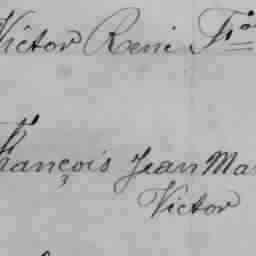 Victor René Fçois
François Jean Ma
Victor